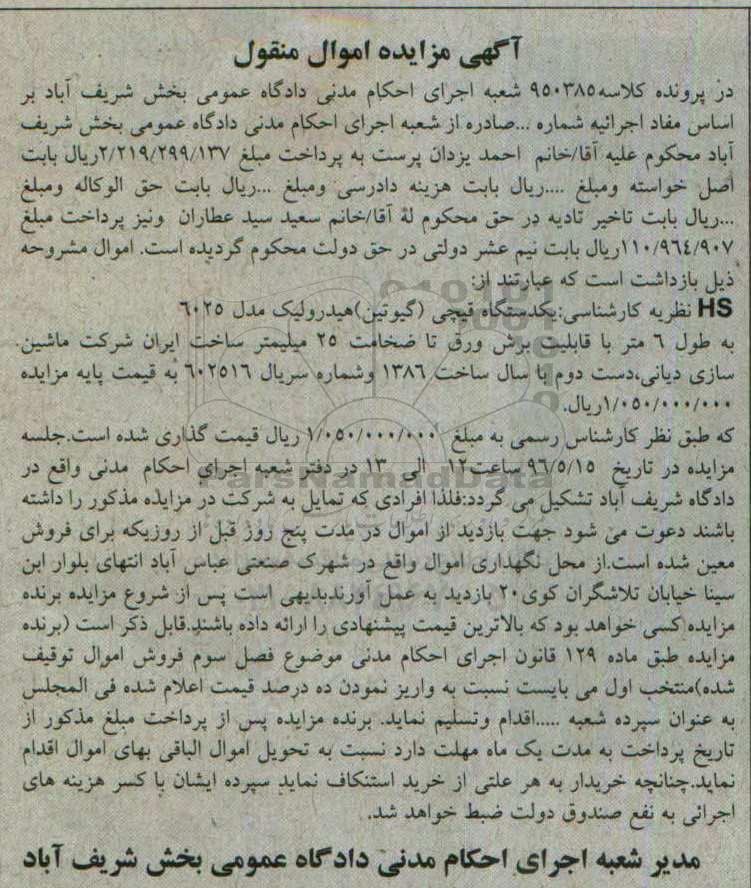 آگهی مزایده اموال منقول
در پرونده کلاسه۹۵۰۳۸۵ شعبه اجرای احکام مدنی دادگاه عمومی بخش شریف آباد بر
اساس مفاد اجرائیه شماره ...صادره از شعبه اجرای احکام مدنی دادگاه عمومی بخش شریف
آباد محکوم علیه آقا/خانم احمد یزدان پرست به پرداخت مبلغ ۲/۲۱۹/۲۹۹/۱۳۷ریال بابت
اصل خواسته ومبلغ ....ریال بابت هزینه دادرسی ومبلغ ...ریال بابت حق الوکاله ومبلغ
...ریال بابت تاخیر تادیه در حق محکوم لهٔ آقا/خانم سعید سید عطاران ونیز پرداخت مبلغ
۱۱۰/۹٦٤/۹۰۷ریال بابت نیم عشر دولتی در حق دولت محکوم گردیده است. اموال مشروحه
ذیل بازداشت است که عبارتند از:
HS نظریه کارشناسی:یکدستگاه قیچی (گیوتین)هیدرولیک مدل ٦۰۲۵
به طول ٦ متر با قابلیت برش ورق تا ضخامت ۲۵ میلیمتر ساخت ایران شرکت ماشین
سازی دیانی،دست دوم با سال ساخت ۱۳۸٦ وشماره سریال ٦۰۲۵۱٦ به قیمت پایه مزایده
۱/۰۵۰/۰۰۰/۰۰۰ریال.
که طبق نظر کارشناس رسمی به مبلغ ۱/۰۵۰/۰۰۰/۰۰۰ ریال قیمت گذاری شده است.جلسه
مزایده در تاریخ ۹٦/۵/۱۵ ساعت۱۲ الی ۱۳ در دفتر شعبه اجرای احکام مدنی واقع در
دادگاه شریف آباد تشکیل می گردد:فلذا افرادی که تمایل به شرکت در مزایده مذکور را داشته
باشند دعوت می شود جهت بازدید از اموال در مدت پنج روز قبل از روزیکه برای فروش
معین شده است.از محل نگهداری اموال واقع در شهرک صنعتی عباس آباد انتهای بلوار ابن
سینا خیابان تلاشگران کوی۲۰ بازدید به عمل آورندبدیهی است پس از شروع مزایده برنده
مزایده کسی خواهد بود که بالاترین قیمت پیشنهادی را ارائه داده باشند.قابل ذکر است (برنده
مزایده طبق ماده ۱۲۹ قانون اجرای احکام مدنی موضوع فصل سوم فروش اموال توقیف
شده)منتخب اول می بایست نسبت به واریز نمودن ده درصد قیمت اعلام شده فی المجلس
به عنوان سپرده شعبه .....اقدام وتسلیم نماید. برنده مزایده پس از پرداخت مبلغ مذکور از
تاریخ پرداخت به مدت یک ماه مهلت دارد نسبت به تحویل اموال الباقی بهای اموال اقدام
نماید.چنانچه خریدار به هر علتی از خرید استنکاف نماید سپرده ایشان با کسر هزینه های
اجرائی به نفع صندوق دولت ضبط خواهد شد.
مدیر شعبه اجرای احکام مدنی دادگاه عمومی بخش شریف آباد
ParsNamadData